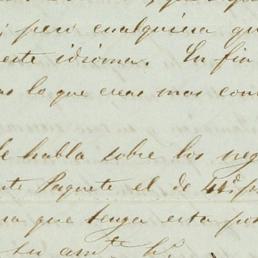 ; pero cualquiera qu
este idioma. En fin
as lo que creas mas con
le habla sobre los neg
nte Paquete el de
na que tenga esta pos
tu am.te h.o